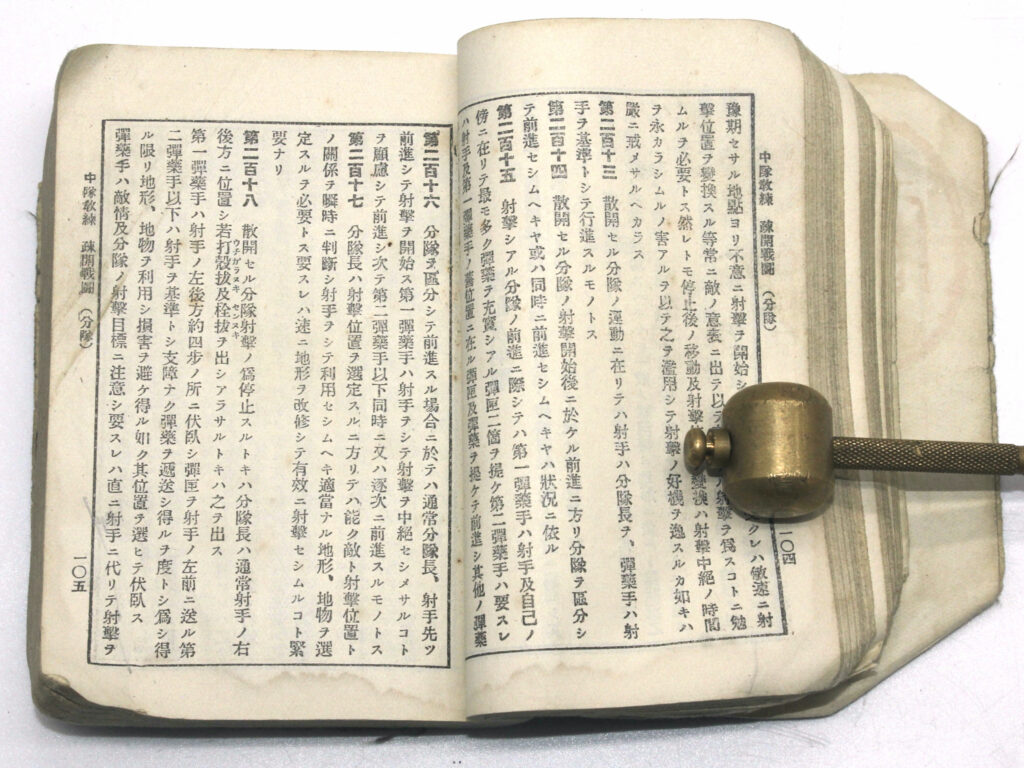 中隊教練 疎開戰鬪 (分隊)
一〇四
豫期セサル地點ヨリ不意ニ射擊ヲ開始シ
クレハ敏速ニ射
擊位置ヲ變換スル等常ニ敵ノ意表ニ出テ以テ
射擊ヲ爲スコトニ勉
ムルヲ必要トス然レトモ停止後ノ移動及射擊
變換ハ射擊中絕ノ時間
ヲ永カラシムルノ害アルヲ以テ之ヲ濫用シテ射擊ノ好機ヲ逸スルカ如キハ
嚴ニ戒メサルヘカラス
第二百十三 散開セル分隊ノ運動ニ在リテハ射手ハ分隊長ヲ、彈藥手ハ射
手ヲ基準トシテ行進スルモノトス
第二百十四 散開セル分隊ノ射擊開始後ニ於ケル前進ニ方リ分隊ヲ區分シ
テ前進セシムヘキヤ或ハ同時ニ前進セシムヘキヤハ狀況ニ依ル
第二百十五 射擊シアル分隊ノ前進ニ際シテハ第一彈藥手ハ射手及自己ノ
傍ニ在リテ最モ多ク彈藥ヲ充實シアル彈匣二箇ヲ提ケ第二彈藥手ハ要スレ
ハ射手及第一彈藥手ノ舊位置ニ在ル彈匣及彈藥ヲ提ケテ前進シ其他ノ彈藥
第二百十六 分隊ヲ區分シテ前進スル場合ニ於テハ通常分隊長、射手先ツ
前進シテ射擊ヲ開始ス第一彈藥手ハ射手ヲシテ射擊ヲ中絕セシメサルコト
ヲ顧慮シテ前進シ次テ第二彈藥手以下同時ニ又ハ逐次ニ前進スルモノトス
第二百十七 分隊長ハ射擊位置ヲ選定スルニ方リテハ能ク敵ト射擊位置ト
ノ關係ヲ瞬時ニ判斷シ射手ヲシテ利用セシムヘキ適當ナル地形、地物ヲ選
定スルヲ必要トス要スレハ速ニ地形ヲ改修シテ有效ニ射擊セシムルコト緊
要ナリ
第二百十八 散開セル分隊射擊ノ爲停止スルトキハ分隊長ハ通常射手ノ右
後方ニ位置シ若打殼拔及栓拔ヲ出シアラサルトキハ之ヲ出ス
ウチガラヌキ センヌキ
第一彈藥手ハ射手ノ左後方約四步ノ所ニ伏臥シ彈匣ヲ射手ノ左前ニ送ル第
二彈藥手以下ハ射手ヲ基準トシ支障ナク彈藥ヲ遞送シ得ルヲ度トシ爲シ得
ル限リ地形、地物ヲ利用シ損害ヲ避ケ得ル如ク其位置ヲ選ヒテ伏臥ス
彈藥手ハ敵情及分隊ノ射擊目標ニ注意シ要スレハ直ニ射手ニ代リテ射擊ヲ
中隊敎練 疎開戰鬪 (分隊)
一〇五